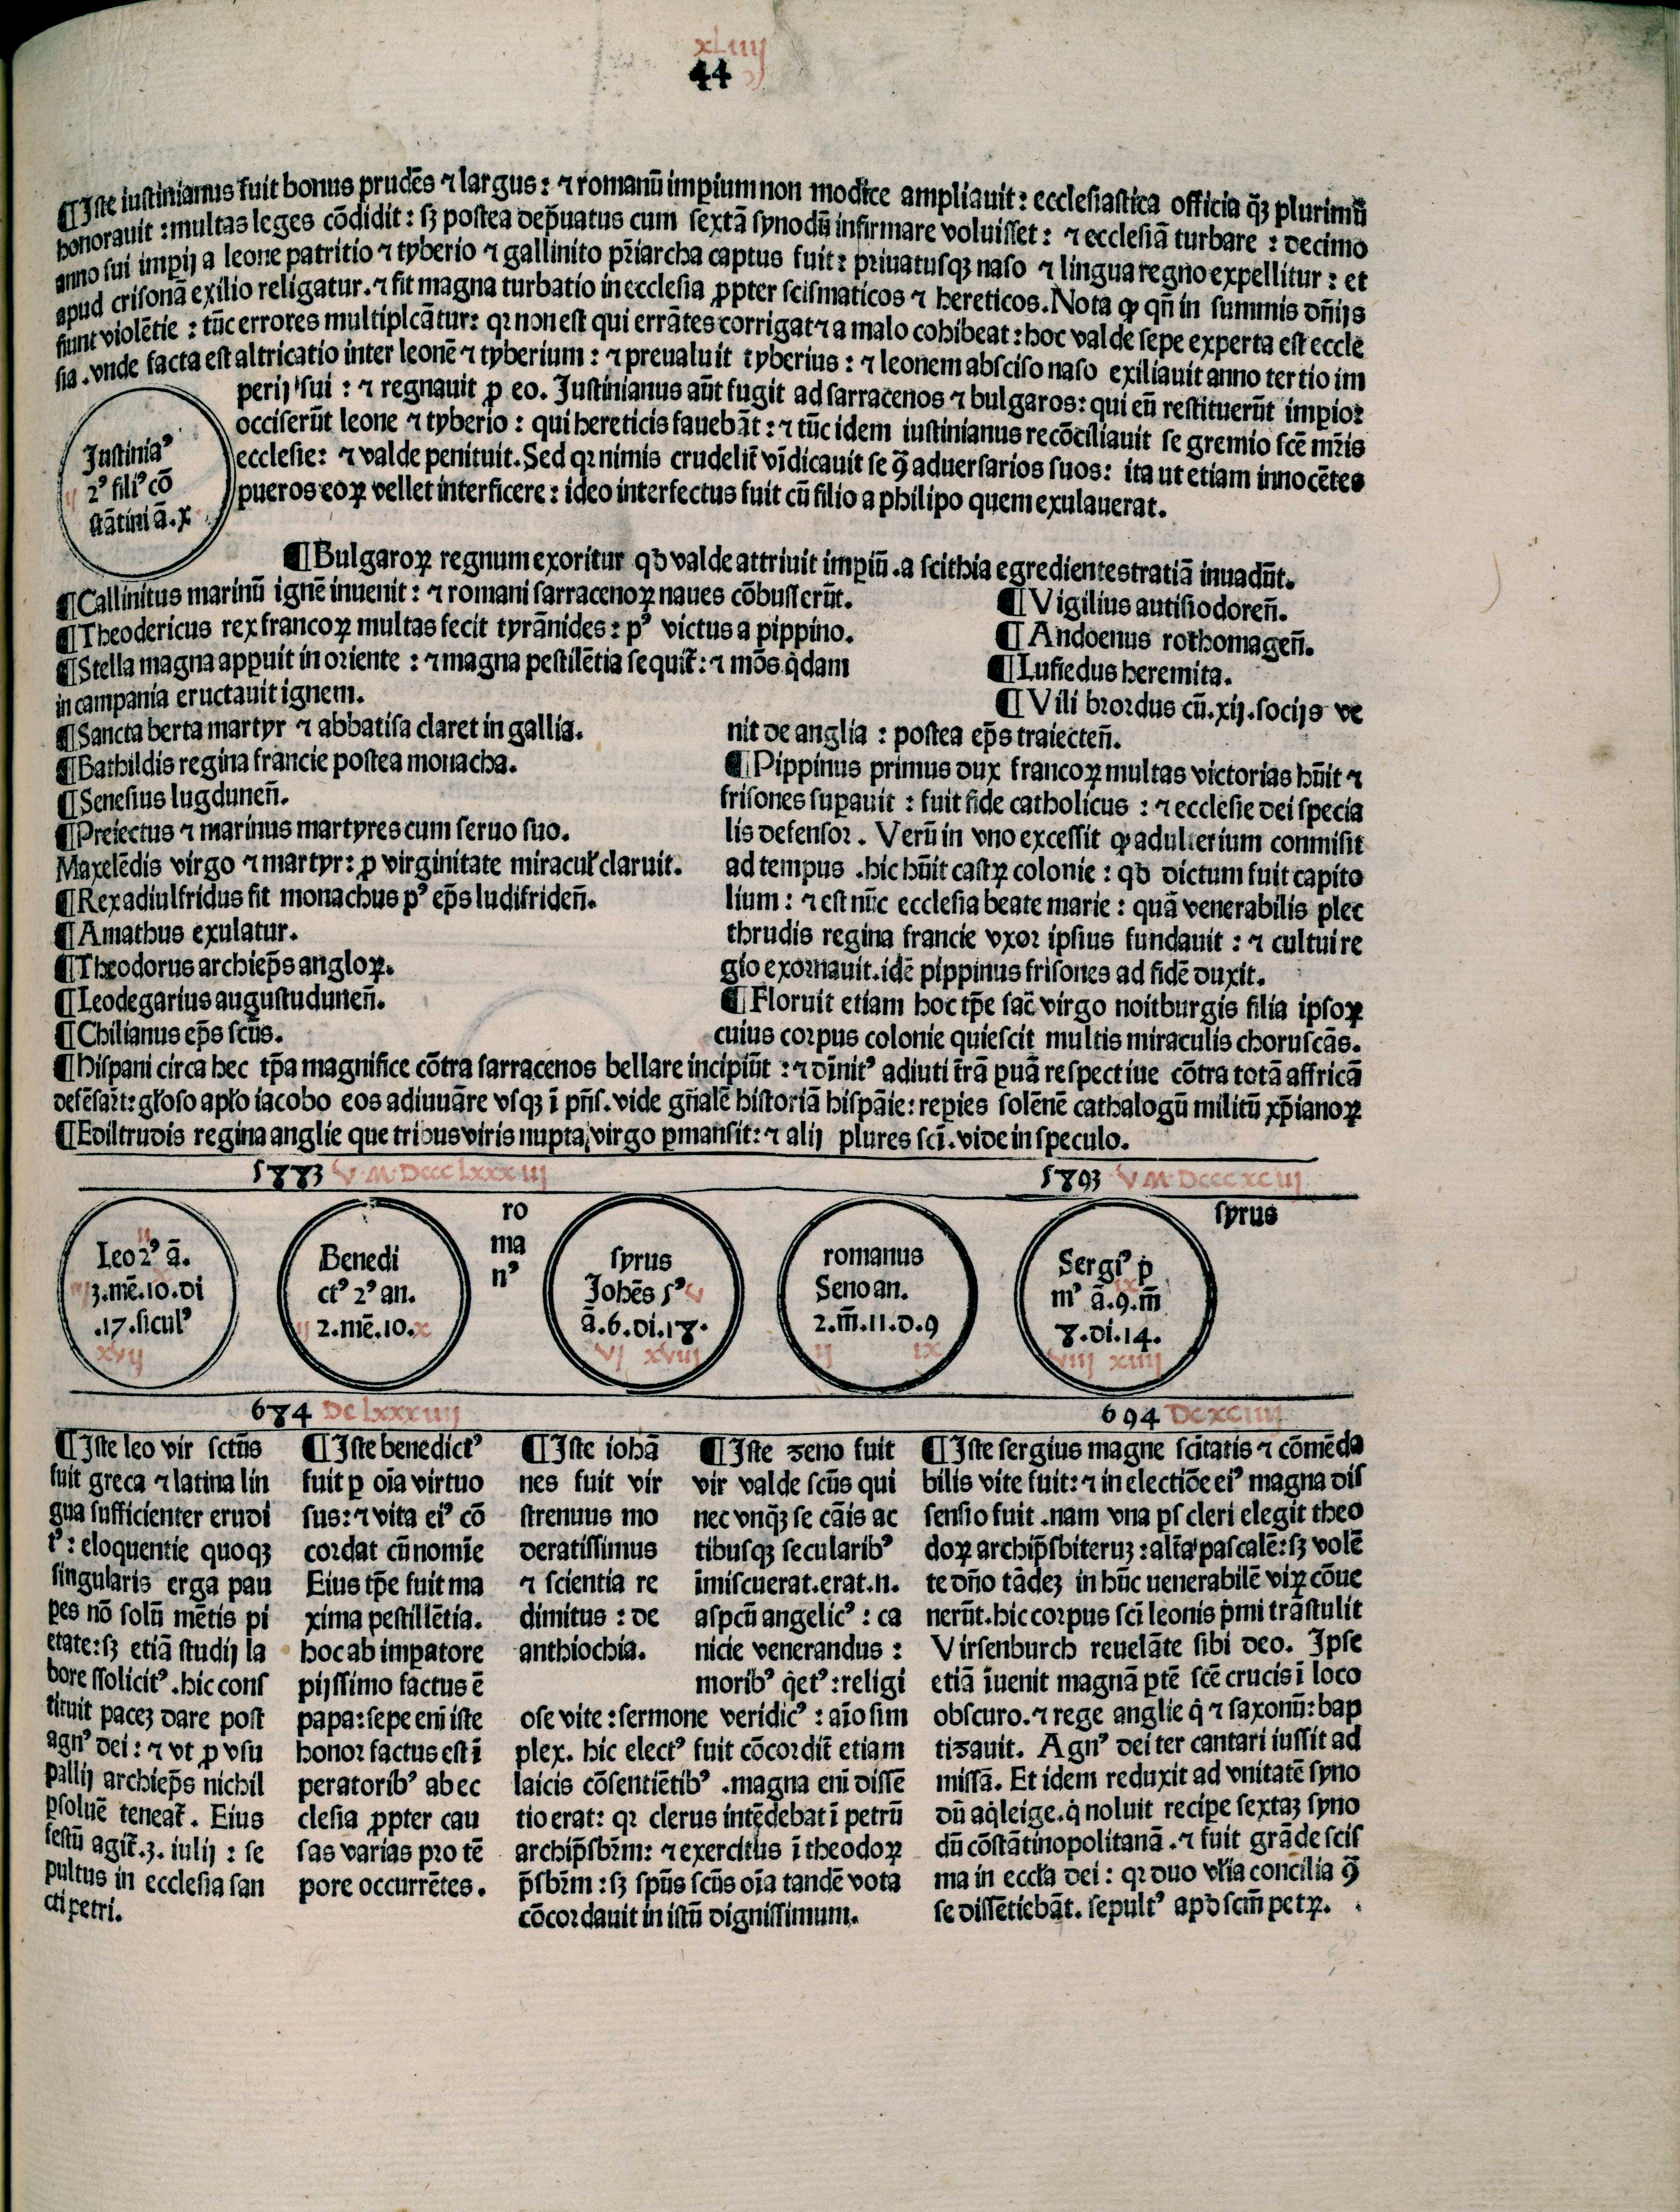 xLiiij
44
¶Iste iustinianus fuit bonus prudēs ⁊ largus: ⁊ romanū imꝑium non modice ampliauit: ecclesiastica officia q̄ꝫ plurimū
honorauit: multas leges cōdidit: sꝫ postea dep̄uatus cum sextā synodū infirmare voluisset: ⁊ ecclesiā turbare: decimo
anno sui imꝑij a leone patritio ⁊ tyberio ⁊ gallinito pr̄iarcha captus fuit: priuatusqꝫ naso ⁊ lingua regno expellitur: et
apud crisonā exilio religatur. ⁊ fit magna turbatio in ecclesia ꝓpter scismaticos ⁊ hereticos. Nota ꝙ qn̄ in summis dn̄ijs
fiunt violētie: tūc errores multiplcātur: qꝛ non est qui errātes corrigat ⁊ a malo cohibeat: hoc valde sepe experta est eccle
sia. vnde facta est altricatio inter leonē ⁊ tyberium: ⁊ preualuit tyberius: ⁊ leonem absciso naso exiliauit anno tertio im
perij sui: ⁊ regnauit ꝓ eo. Justinianus aūt fugit ad sarracenos ⁊ bulgaros: qui eū restituerūt imꝑio:
occiserūt leone ⁊ tyberio: qui hereticis fauebāt: ⁊ tūc idem iustinianus recōciliauit se gremio scē mr̄is
ecclesie: ⁊ valde penituit. Sed qꝛ nimis crudelit̄ vīdicauit se ꝯ̄ aduersarios suos: ita ut etiam innocētes
pueros eoꝝ vellet interficere: ideo interfectus fuit cū filio a philipo quem exulauerat.
Justiniaꝰ
2ꝰ filiꝰ cō
stātini ā. x
¶Bulgaroꝝ regnum exoritur qd̄ valde attriuit imꝑiū. a scithia egredientes tratiā inuadūt.
¶Callinitus marinū ignē inuenit: ⁊ romani sarracenoꝝ naues cōbusserūt.
¶Theodericus rex francoꝝ multas fecit tyrānides: pꝰ victus a pippino.
¶Stella magna apꝑuit in oriente: ⁊ magna pestilētia sequit̄: ⁊ mōs q̇dam
in campania eructauit ignem.
¶Sancta berta martyr ⁊ abbatisa claret in gallia.
¶Bathildis regina francie postea monacha.
¶Senesius lugdunen̄.
¶Preiectus ⁊ marinus martyres cum seruo suo.
Maxelēdis virgo ⁊ martyr: ꝓ virginitate miracul̄ claruit.
¶Rex adiulfridus fit monachus pꝰ ep̄s ludifriden̄.
¶Amathus exulatur.
¶Theodorus archiep̄s angloꝝ.
¶Leodegarius augustudunen̄.
¶Chilianus ep̄s scūs.
¶Vigilius autisiodoren̄.
¶Andoenus rothomagen̄.
¶Lufiedus heremita.
¶Vili brordus cū. xij. socijs ve
nit de anglia: postea ep̄s traiecten̄.
¶Pippinus primus dux francoꝝ multas victorias hūit ⁊
frisones suꝑauit: fuit fide catholicus: ⁊ ecclesie dei specia
lis defensor. Verū in vno excessit ꝙ adulterium conmisit
ad tempus. hic hūit castꝝ colonie: qd̄ dictum fuit capito
lium: ⁊ est nūc ecclesia beate marie: quā venerabilis plec
thrudis regina francie vxor ipsius fundauit: ⁊ cultui re
gio exornauit. idē pippinus frisones ad fidē duxit.
¶Floruit etiam hoc tp̄e sac̄ virgo noitburgis filia ipsoꝝ
cuius corpus colonie quiescit multis miraculis choruscās.
¶hispani circa hec tp̄a magnifice cōtra sarracenos bellare incipiūt: ⁊ dīnitꝰ adiuti t̄rā ꝑuā respectiue cōtra totā affricā
defēsar̄t: gl̄oso apl̄o iacobo eos adiuuāre vsqꝫ ī pn̄s. vide gn̄alē historiā hispāie: reꝑies solēnē cathalogū militū xp̄ianoꝝ
¶Ediltrudis regina anglie que tribus viris nupta, virgo ꝑmansit: ⁊ alij plures sci̅. vide in speculo.
5883 V M DCCC Lxxx iij
5893 V M DCCC XC iij
Leo 2ꝰ ā.
3. mē. 10. di
.17. siculꝰ
xvij
Benedi
ctꝰ 2ꝰ an.
2. mē. 10. x
ro
ma
nꝰ
syrus
Johēs 5ꝰ v
ā. 6. di. 18.
vj xviij
romanus
Seno an.
2. m̄. 11. d. 9
ij ix
Sergiꝰ ṗ
mꝰ ā. 9. m̄
8. di. 14.
viij xiiij
syrus
684 DC lxxxiiij
694 DC XC iiij
¶Iste leo vir sctūs
fuit greca ⁊ latina lin
gua sufficienter erudi
tꝰ: eloquentie quoqꝫ
singularis erga pau
pes nō solū mētis pi
etate: sꝫ etiā studij la
bore ssolicitꝰ. hic cons
tituit pacez dare post
agnꝰ dei: ⁊ vt ꝓ vsu
pallij archiep̄s nichil
ꝑsoluē teneat̄. Eius
festū agit̄. 3. iulij: se
pultus in ecclesia san
cti petri.
¶Iste benedictꝰ
fuit ꝑ oīa virtuo
sus: ⁊ vita eiꝰ cō
cordat cū nomīe
Eius tp̄e fuit ma
xima pestillētia.
hoc ab impatore
pijssimo factus ē
papa: sepe eni̅ iste
honor factus est ī
peratoribꝰ ab ec
clesia ꝓpter cau
sas varias pro tē
pore occurrētes.
¶Iste iohā
nes fuit vir
strenuus mo
deratissimus
⁊ scientia re
dimitus: de
anthiochia.
¶Iste zeno fuit
vir valde scūs qui
nec vnqꝫ̄ se cāis ac
tibusqꝫ secularibꝰ
īmiscuerat. erat. n.
aspcū angelicꝰ: ca
nicie venerandus:
moribꝰ q̇etꝰ: religi
ose vite: sermone veridicꝰ: aīo sim
plex. hic electꝰ fuit cōcordit̄ etiam
laicis cōsentiētibꝰ. magna eni̅ dissē
tio erat: qꝛ clerus intēdebat ī petrū
archip̄sbr̄m: ⁊ exercitus ī theodoꝝ
p̄sbr̄m: sꝫ spūs scūs oīa tandē vota
cōcordauit in istū dignissimum.
¶Iste sergius magne scītatis ⁊ cōmēda
bilis vite fuit: ⁊ in electiōe eiꝰ magna dis
sensio fuit. nam vna ps cleri elegit theo
doꝝ archip̄sbiteruꝫ: alt̄a pascalē: sꝫ volē
te dn̄o tādeꝫ in hūc uenerabilē viꝝ cōue
nerūt. hic corpus sci̅ leonis ṗmi trāstulit
Virsenburch reuelāte sibi deo. Ipse
etiā īuenit magnā ꝑtē scē crucis ī loco
obscuro. ⁊ rege anglie q̇ ⁊ saxonū: bap
tizauit. Agnꝰ dei ter cantari iussit ad
missā. Et idem reduxit ad vnitatē syno
dū aq̇leige. q̇ noluit reciꝑe sextaꝫ syno
dū cōstātinopolitanā. ⁊ fuit grāde scis
ma in eccl̄a dei: qꝛ duo vl̄ia concilia ꝯ̄
se dissētiebāt. sepultꝰ apd̄ scm̄ petꝝ.